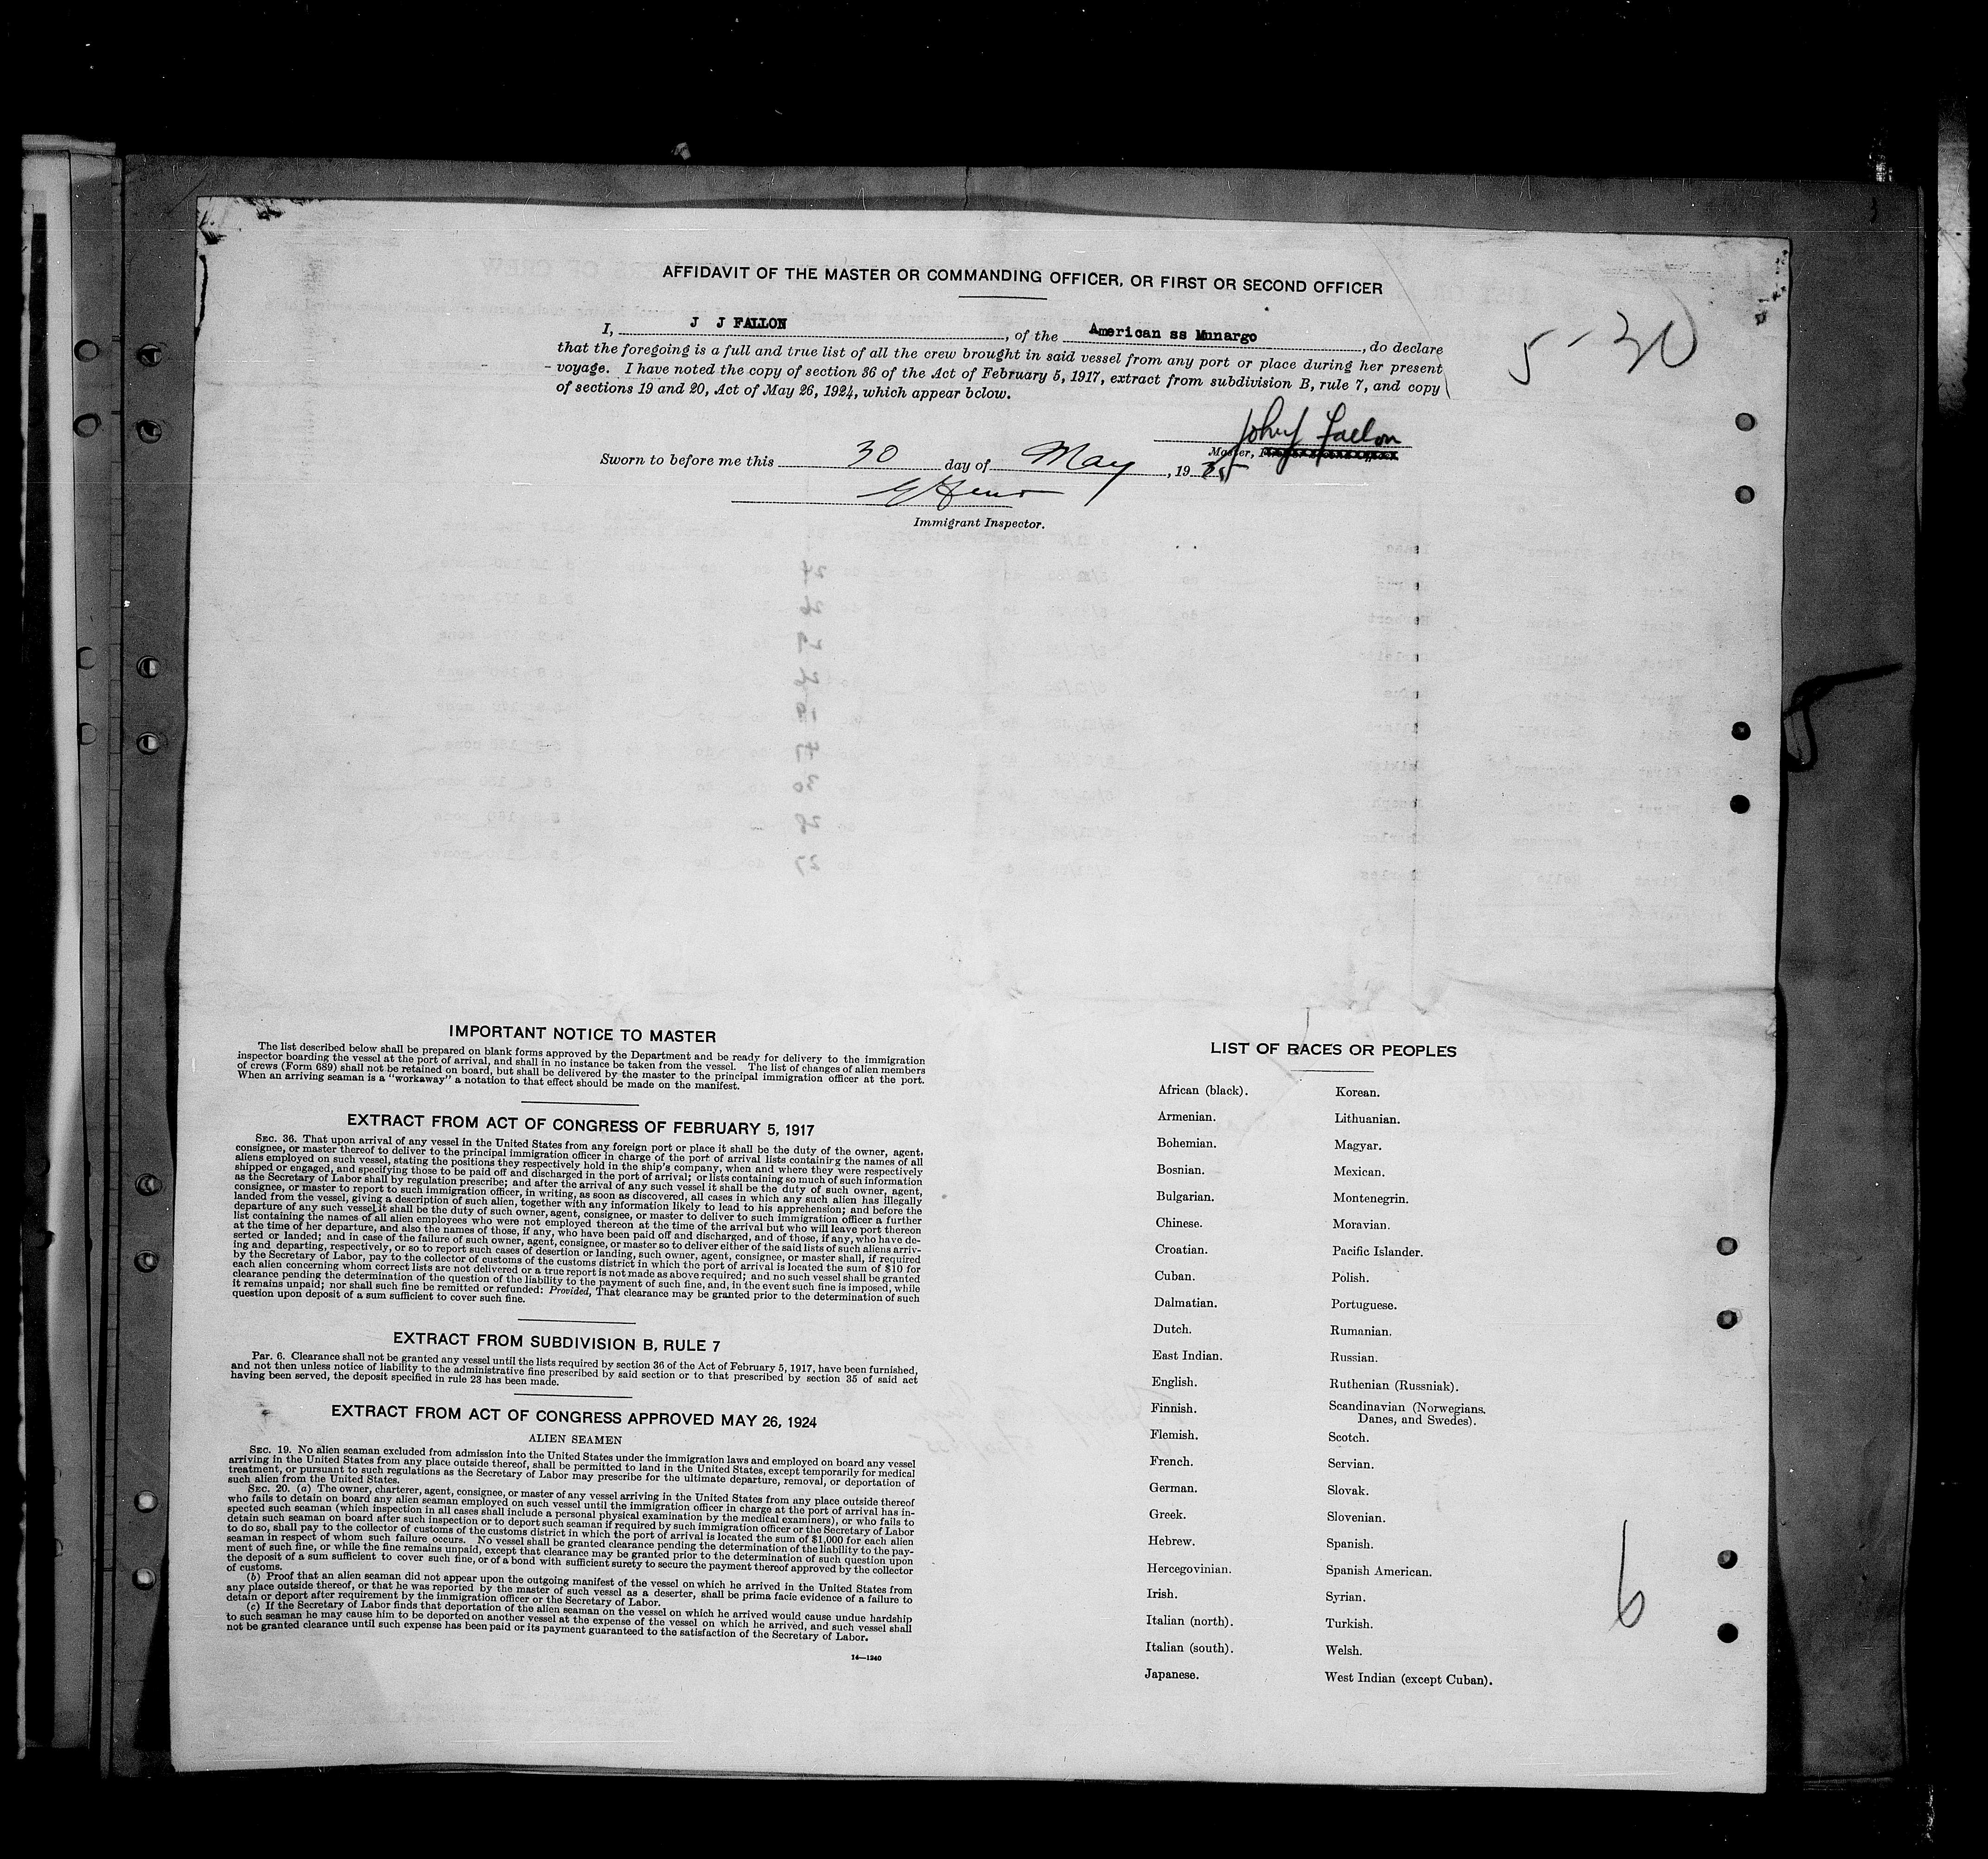 AFFIDAVIT OF THE MASTER OR COMMANDING OFFICER, OR FIRST OR SECOND OFFICER
I, J J FALLON, of the American ss Munargo, do declare
that the foregoing is a full and true list of all the crew brought in said vessel from any port or place during her present
voyage. I have noted the copy of section 36 of the Act of February 5, 1917, extract from subdivision B, rule 7, and copy
of sections 19 and 20, Act of May 26, 1924, which appear below.
5-30
John J Fallon
Master,
Sworn to before me this 30 day of May, 1935
Immigrant Inspector.
IMPORTANT NOTICE TO MASTER
The list described below shall be prepared on blank forms approved by the Department and be ready for delivery to the immigration
inspector boarding the vessel at the port of arrival, and shall in no instance be taken from the vessel. The list of changes of alien members
of crews (Form 689) shall not be retained on board, but shall be delivered by the master to the principal immigration officer at the port.
When an arriving seaman is a "workaway" a notation to that effect should be made on the manifest.
EXTRACT FROM ACT OF CONGRESS OF FEBRUARY 5, 1917
SEC. 36. That upon arrival of any vessel in the United States from any foreign port or place it shall be the duty of the owner, agent,
consignee, or master thereof to deliver to the principal immigration officer in charge of the port of arrival lists containing the names of all
aliens employed on such vessel, stating the positions they respectively hold in the ship's company, when and where they were respectively
shipped or engaged, and specifying those to be paid off and discharged in the port of arrival; or lists containing so much of such information
as the Secretary of Labor shall by regulation prescribe; and after the arrival of any such vessel it shall be the duty of such owner, agent,
consignee, or master to report to such immigration officer, in writing, as soon as discovered, all cases in which any such alien has illegally
landed from the vessel, giving a description of such alien, together with any information likely to lead to his apprehension; and before the
departure of any such vessel it shall be the duty of such owner, agent, consignee, or master to deliver to such immigration officer a further
list containing the names of all alien employees who were not employed thereon at the time of the arrival but who will leave port thereon
at the time of her departure, and also the names of those, if any, who have been paid off and discharged, and of those, if any, who have de-
serted or landed; and in case of the failure of such owner, agent, consignee, or master so to deliver either of the said lists of such aliens arriv-
ing and departing, respectively, or so to report such cases of desertion or landing, such owner, agent, consignee, or master shall, if required
by the Secretary of Labor, pay to the collector of customs of the customs district in which the port of arrival is located the sum of $10 for
each alien concerning whom correct lists are not delivered or a true report is not made as above required; and no such vessel shall be granted
clearance pending the determination of the question of the liability to the payment of such fine, and, in the event such fine is imposed, while
it remains unpaid; nor shall such fine be remitted or refunded: Provided, That clearance may be granted prior to the determination of such
question upon deposit of a sum sufficient to cover such fine.
EXTRACT FROM SUBDIVISION B, RULE 7
Par. 6. Clearance shall not be granted any vessel until the lists required by section 36 of the Act of February 5, 1917, have been furnished,
and not then unless notice of liability to the administrative fine prescribed by said section or to that prescribed by section 35 of said act
having been served, the deposit specified in rule 23 has been made.
EXTRACT FROM ACT OF CONGRESS APPROVED MAY 26, 1924
ALIEN SEAMEN
SEC. 19. No alien seaman excluded from admission into the United States under the immigration laws and employed on board any vessel
arriving in the United States from any place outside thereof, shall be permitted to land in the United States, except temporarily for medical
treatment, or pursuant to such regulations as the Secretary of Labor may prescribe for the ultimate departure, removal, or deportation of
such alien from the United States.
SEC. 20. (a) The owner, charterer, agent, consignee, or master of any vessel arriving in the United States from any place outside thereof
who fails to detain on board any alien seaman employed on such vessel until the immigration officer in charge at the port of arrival has in-
spected such seaman (which inspection in all cases shall include a personal physical examination by the medical examiners), or who fails to
detain such seaman on board after such inspection or to deport such seaman if required by such immigration officer or the Secretary of Labor
to do so, shall pay to the collector of customs of the customs district in which the port of arrival is located the sum of $1,000 for each alien
seaman in respect of whom such failure occurs. No vessel shall be granted clearance pending the determination of the liability to the pay-
ment of such fine, or while the fine remains unpaid, except that clearance may be granted prior to the determination of such question upon
the deposit of a sum sufficient to cover such fine, or of a bond with sufficient surety to secure the payment thereof approved by the collector
of customs.
(b) Proof that an alien seaman did not appear upon the outgoing manifest of the vessel on which he arrived in the United States from
any place outside thereof, or that he was reported by the master of such vessel as a deserter, shall be prima facie evidence of a failure to
detain or deport after requirement by the immigration officer or the Secretary of Labor.
(c) If the Secretary of Labor finds that deportation of the alien seaman on the vessel on which he arrived would cause undue hardship
to such seaman he may cause him to be deported on another vessel at the expense of the vessel on which he arrived, and such vessel shall
not be granted clearance until such expense has been paid or its payment guaranteed to the satisfaction of the Secretary of Labor.
14—1240
LIST OF RACES OR PEOPLES
African (black).
Armenian.
Bohemian.
Bosnian.
Bulgarian.
Chinese.
Croatian.
Cuban.
Dalmatian.
Dutch.
East Indian.
English.
Finnish.
Flemish.
French.
German.
Greek.
Hebrew.
Hercegovinian.
Irish.
Italian (north).
Italian (south).
Japanese.
Korean.
Lithuanian.
Magyar.
Mexican.
Montenegrin.
Moravian.
Pacific Islander.
Polish.
Portuguese.
Rumanian.
Russian.
Ruthenian (Russniak).
Scandinavian (Norwegians,
Danes, and Swedes).
Scotch.
Servian.
Slovak.
Slovenian.
Spanish.
Spanish American.
Syrian.
Turkish.
Welsh.
West Indian (except Cuban).
6